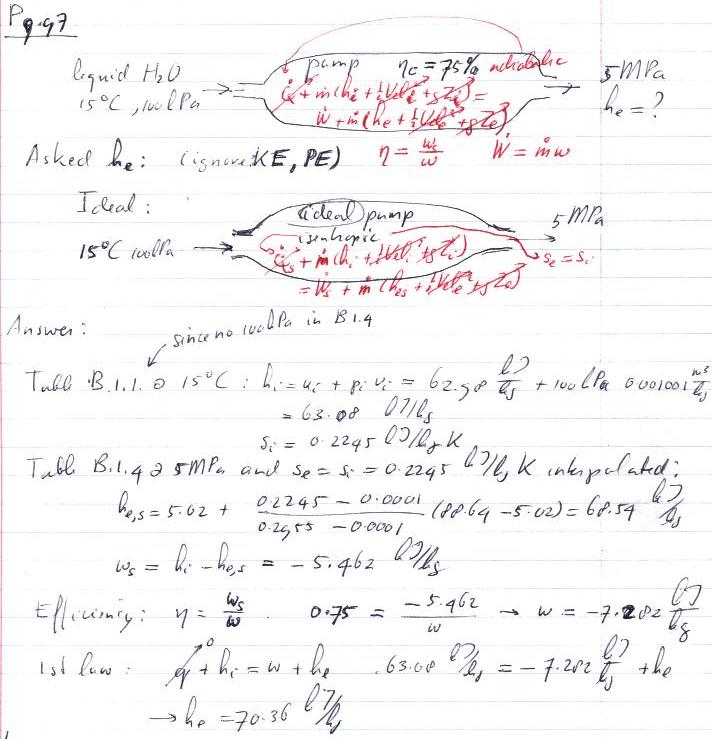 P 9.97
liquid H2O
15°C, 100 kPa
pump ηc = 75% adiabatic
Q̇ + ṁ(hi + ½Veli² + gZi) =
Ẇ + ṁ(he + ½Vele² + gZe)
5 MPa
he = ?
Asked he: (ignore KE, PE) η = ws/w Ẇ = ṁw
Ideal:
15°C 100kPa
(ideal) pump
isentropic
Q̇s + ṁ(hi + ½Veli² + gZi)
= Ẇs + ṁ(hes + ½Vele² + gZe)
5 MPa
se = si
Answer:
since no 100kPa in B 1.4
Table B.1.1 @ 15°C : hi = ui + pi vi = 62.98 kJ/kg + 100kPa 0.001001 m³/kg
= 63.08 kJ/kg
si = 0.2245 kJ/kg K
Table B.1.4 @ 5MPa and se = si = 0.2245 kJ/kg K interpolated:
he,s = 5.02 + (0.2245 - 0.0001)/(0.2955 - 0.0001) (88.64 - 5.02) = 68.54 kJ/kg
ws = hi - he,s = -5.462 kJ/kg
Efficiency: η = ws/w . 0.75 = -5.462/w → w = -7.282 kJ/kg
1st law: q⁰ + hi = w + he . 63.08 kJ/kg = -7.282 kJ/kg + he
→ he = 70.36 kJ/kg